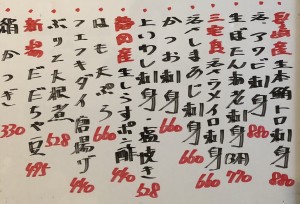 長崎産 生本鮪トロ刺身 880
えんがわ刺身 880
生ぼたん海老刺身 2本 770
三宅島産 メイロ刺身 660
しまあじ刺身 660
かつお刺身 660
上いわし刺身・塩焼き 528
静岡産 生しらすポン酢 440
はも天ぷら 660
フエフキダイ唐揚げ 440
ぶり大根煮 528
新潟 だだちゃ豆 495
絹かつぎ 330